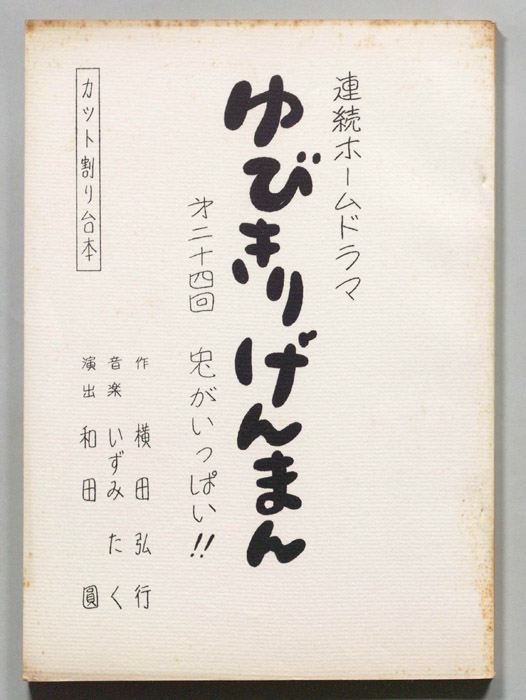 連続ホームドラマ
ゆびきりげんまん
第二十四回 兎がいっぱい!!
作 横田弘行
音楽 いずみたく
演出 和田圓
カット割り台本